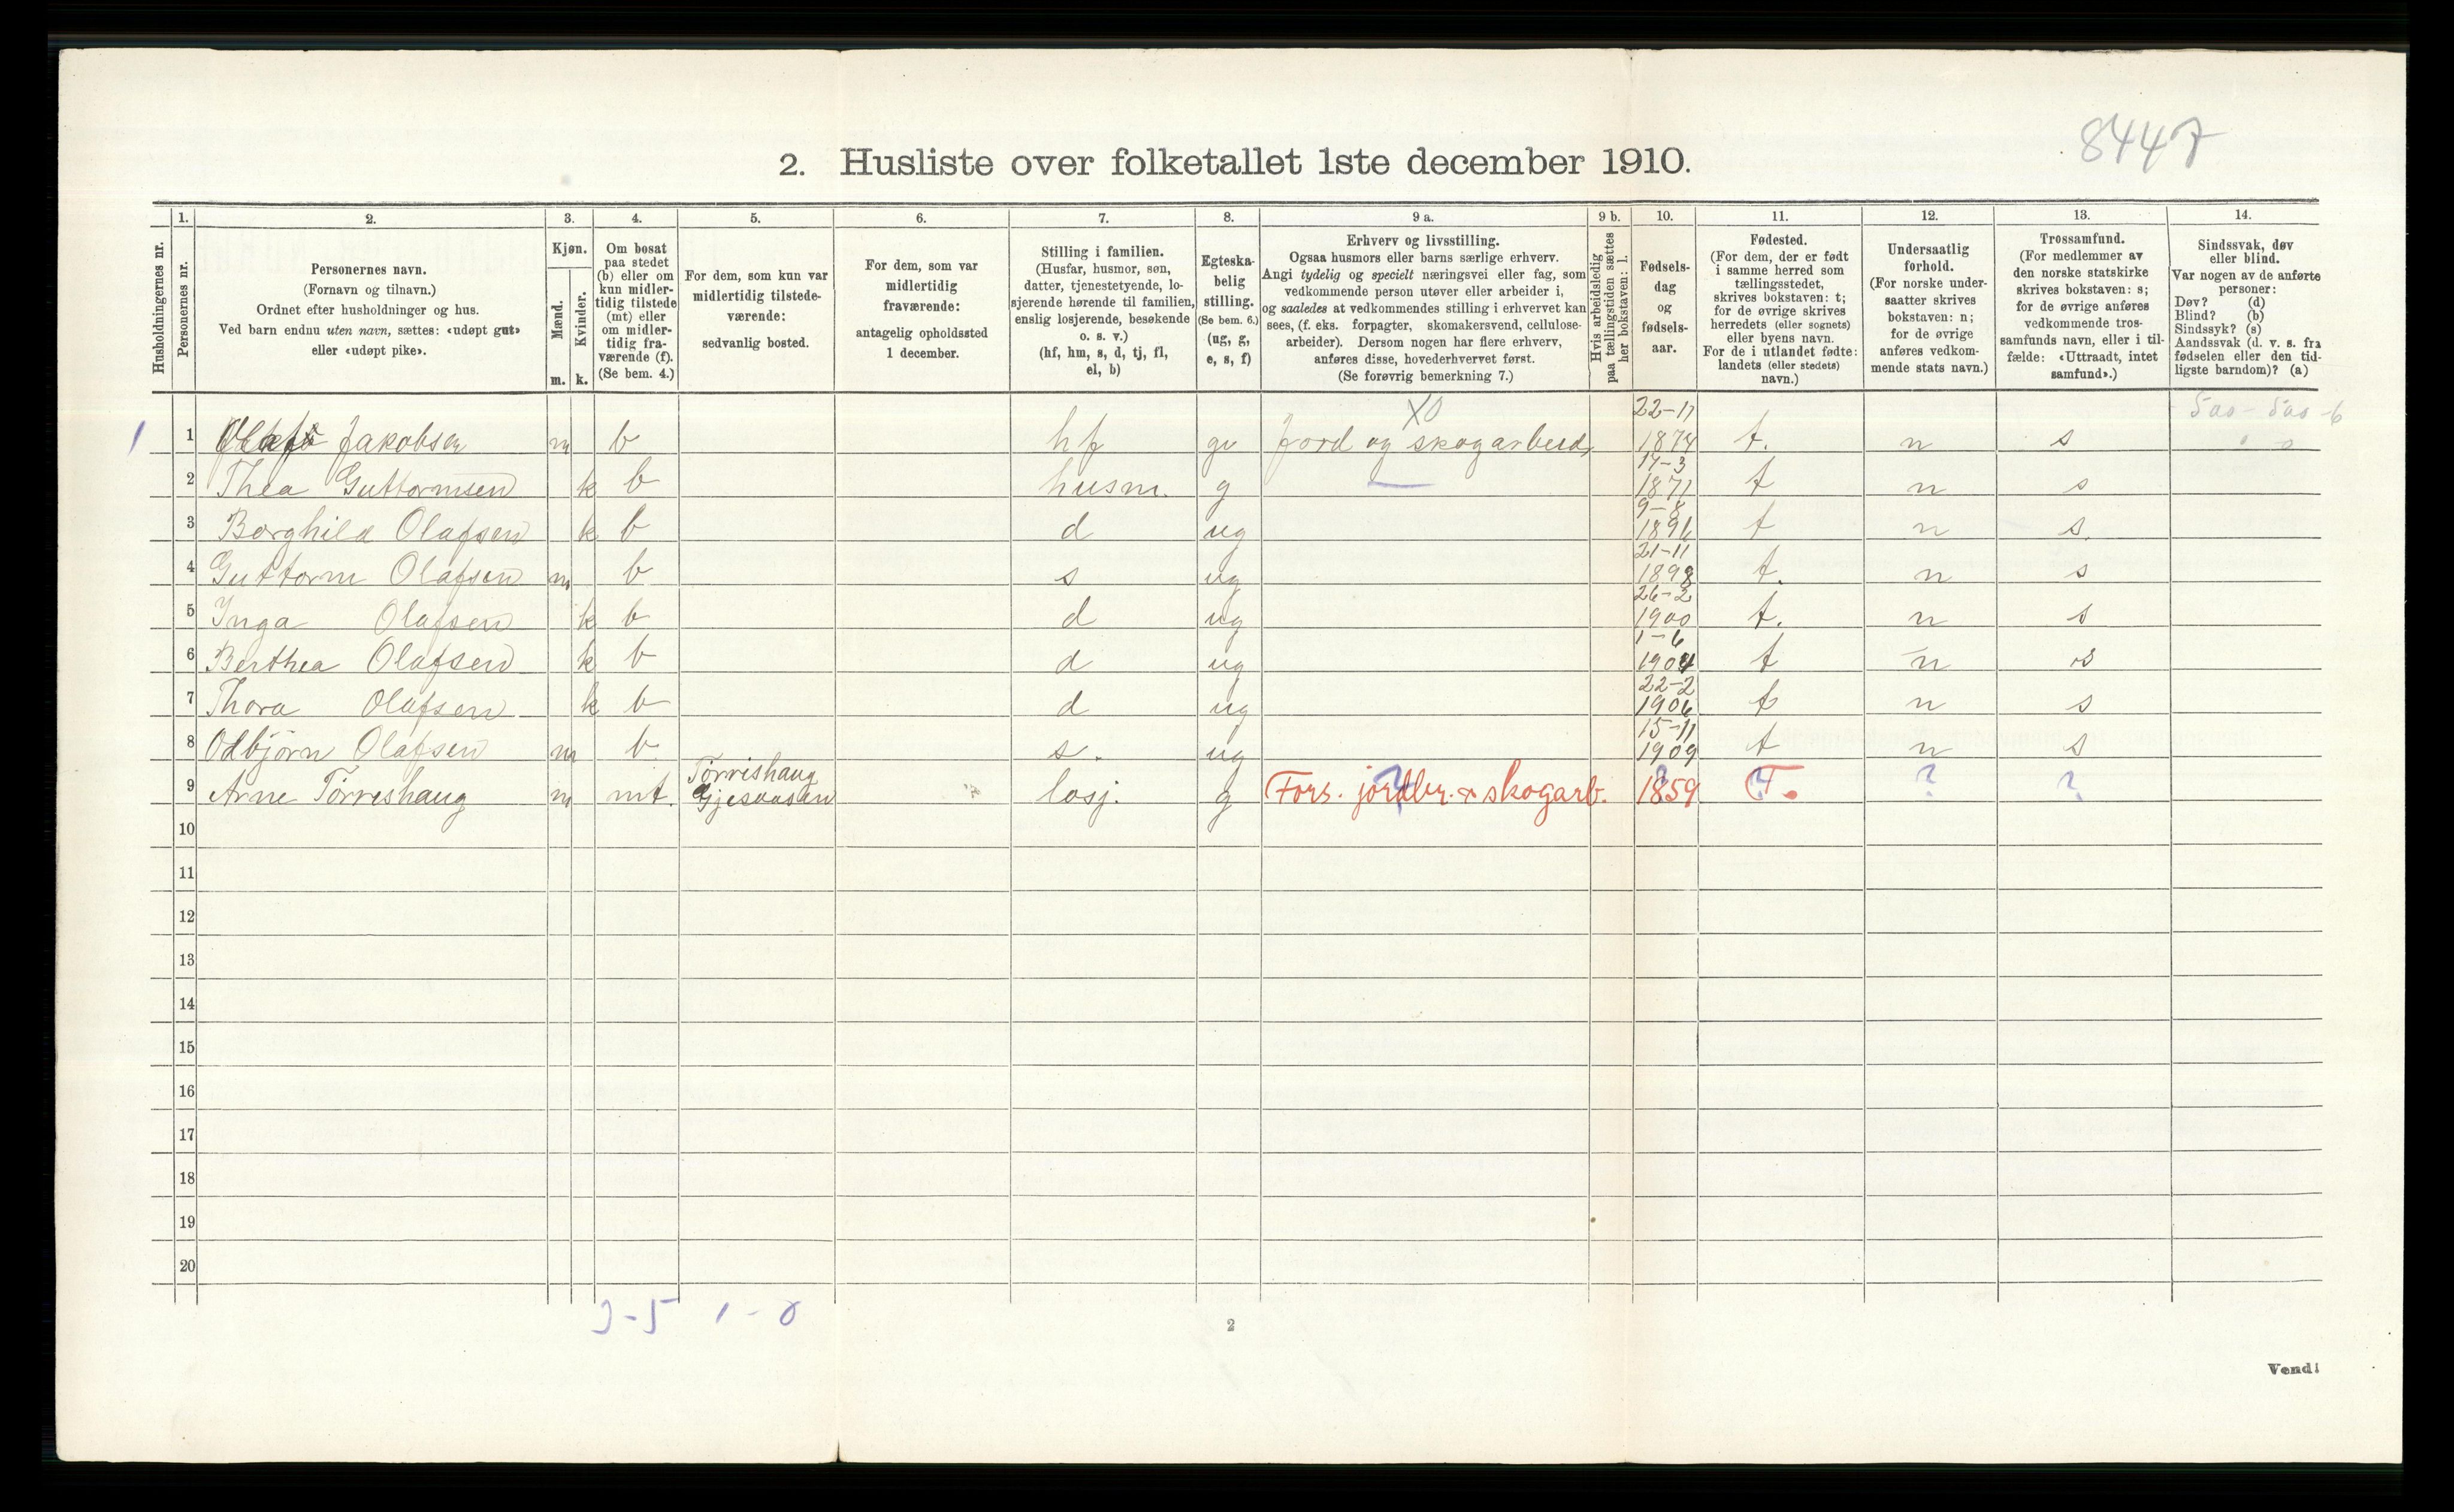 8447
2. Husliste over folketallet 1ste december 1910.
Husholdningernes nr.
1.
Personernes nr.
2.
Personernes navn.
(Fornavn og tilnavn.)
Ordnet efter husholdninger og hus.
Ved barn endnu uten navn, sættes: «udøpt gut»
eller «udøpt pike».
3.
Kjøn.
Mænd.
Kvinder.
m. k.
4.
Om bosat
paa stedet
(b) eller om
kun midler-
tidig tilstede
(mt) eller
om midler-
tidig fra-
værende (f).
(Se bem. 4.)
5.
For dem, som kun var
midlertidig tilstede-
værende:
sedvanlig bosted.
6.
For dem, som var
midlertidig
fraværende:
antagelig opholdssted
1 december.
7.
Stilling i familien.
(Husfar, husmor, søn,
datter, tjenestetyende, lo-
sjerende hørende til familien,
enslig losjerende, besøkende
o. s. v.)
(hf, hm, s, d, tj, fl,
el, b)
8.
Egteska-
belig
stilling.
(Se bem. 6.)
(ug, g,
e, s, f)
9 a.
Erhverv og livsstilling.
Ogsaa husmors eller barns særlige erhverv.
Angi tydelig og specielt næringsvei eller fag, som
vedkommende person utøver eller arbeider i,
og saaledes at vedkommendes stilling i erhvervet kan
sees, (f. eks. forpagter, skomakersvend, cellulose-
arbeider). Dersom nogen har flere erhverv,
anføres disse, hovederhvervet først.
(Se forøvrig bemerkning 7.)
9 b.
Hvis arbeidsledig
paa tællingstiden sættes
her bokstaven: l.
10.
Fødsels-
dag
og
fødsels-
aar.
11.
Fødested.
(For dem, der er født
i samme herred som
tællingsstedet,
skrives bokstaven: t;
for de øvrige skrives
herredets (eller sognets)
eller byens navn.
For de i utlandet fødte:
landets (eller stedets)
navn.)
12.
Undersaatlig
forhold.
(For norske under-
saatter skrives
bokstaven: n;
for de øvrige
anføres vedkom-
mende stats navn.)
13.
Trossamfund.
(For medlemmer av
den norske statskirke
skrives bokstaven: s;
for de øvrige anføres
vedkommende tros-
samfunds navn, eller i til-
fælde: «Uttraadt, intet
samfund».)
14.
Sindssvak, døv
eller blind.
Var nogen av de anførte
personer:
Døv? (d)
Blind? (b)
Sindssyk? (s)
Aandssvak (d. v. s. fra
fødselen eller den tid-
ligste barndom)? (a)
X0 500 - 500 - 6
1 1 Jakobsen m b hf gv jord og skogarbeid, 22-11 1874 t. n s
2 Thea Guttormsen k b husm. g 17-3 1871 t n s
3 Borghild Olafsen k b d ug 9-8 1896 t n s.
4 Guttorm Olafsen m b s ug 21-11 1898 t. n s
5 Inga Olafsen k b d ug 26-2 1900 t. n s
6 Berthea Olafsen k b d ug 1-6 1904 t n s
7 Thora Olafsen k b d ug 22-2 1906 t n s
8 Odbjörn Olafsen m b s. ug 15-11 1909 t n s
9 Arne Törreshaug m mt. Törrishaug Gjesaasen losj. g Fors. jordbr. & skogarb. 1859 T. ? ?
10
11
12
13
14
15
16
17
18
19
20
3-5 1-0
2
Vend!